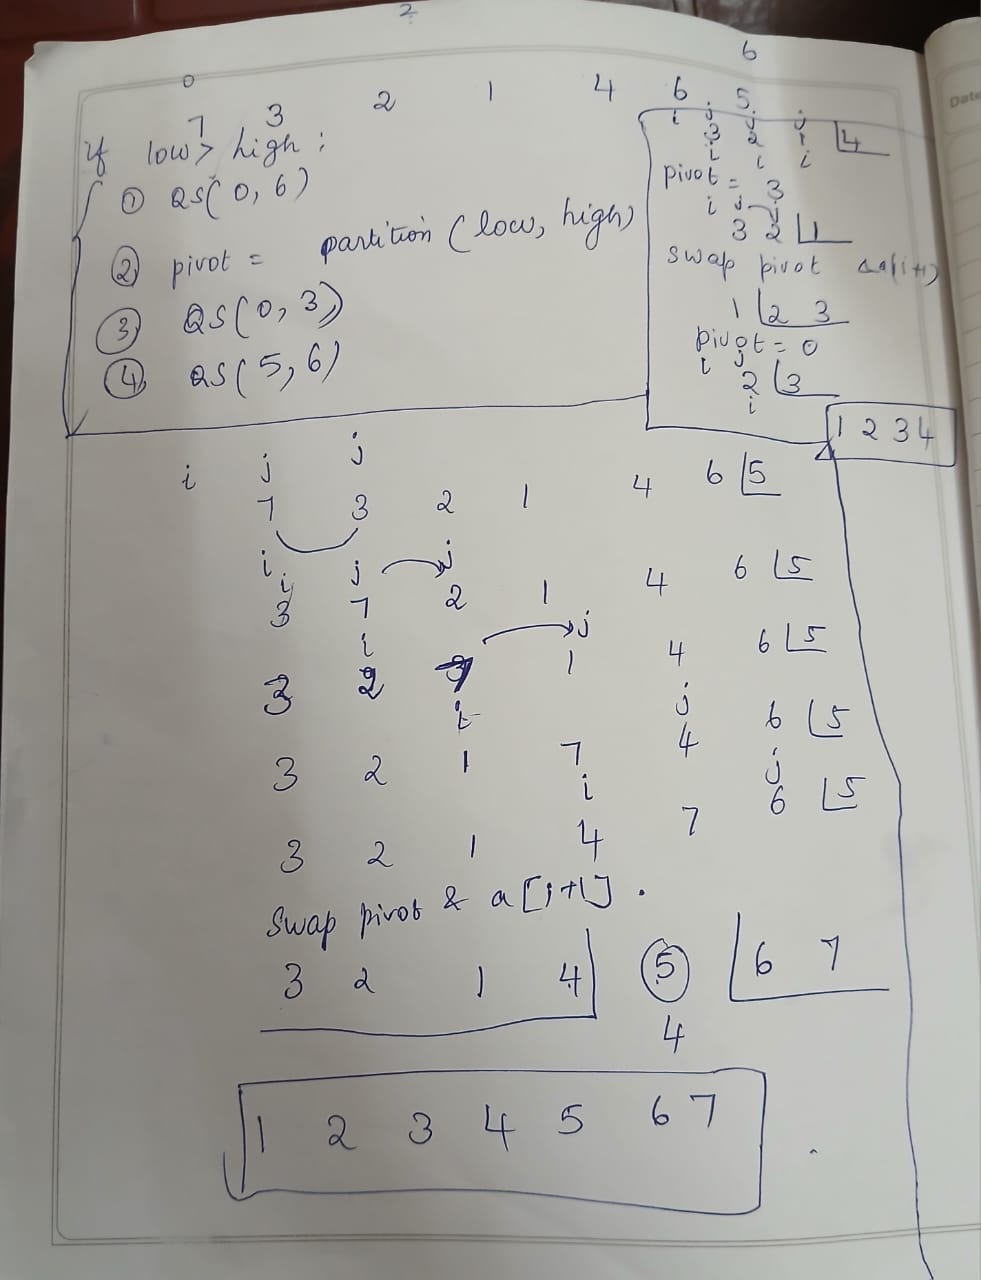 2
0 6
7 3 2 1 4 6 5
if low > high :
① QS(0, 6)
② pivot = partition (low, high)
③ QS(0, 3)
④ QS(5, 6)
i j j j
3 2 1 4
i i i
pivot = 3
i j j
3 2 1
swap pivot & a[i+1]
1 2 3
pivot = 0
i j
2 3
i
1 2 3 4
i j j
7 3 2 1 4 6 5
i j j
i
3 7 2 1 4 6 5
i j
3 2 7 1 4 6 5
i j
3 2 1 7 4 6 5
i j
3 2 1 4 7 6 5
Swap pivot & a[i+1] .
3 2 1 4 5 6 7
4
1 2 3 4 5 6 7